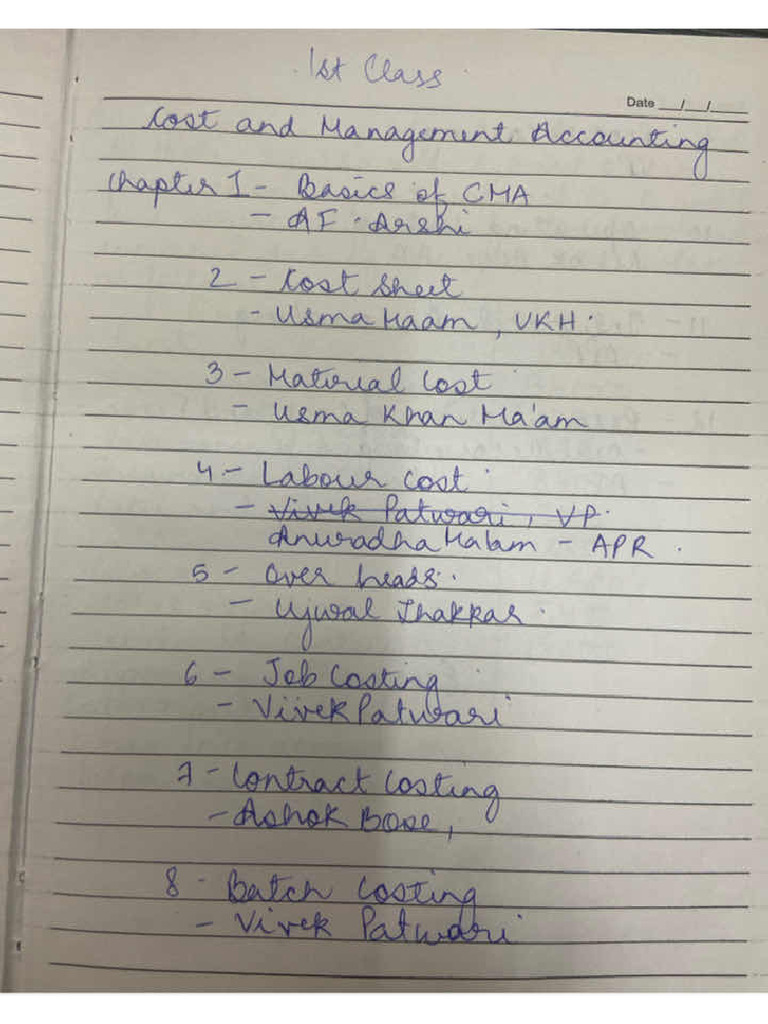 1st Class
Date __/__/____
Cost and Management Accounting
Chapter 1 - Basics of CMA
- AF. Arshi
2 - Cost Sheet
- Usma Maam, VKH.
3 - Material Cost
- Usma Khan Ma'am
4 - Labour Cost.
- Vivek Patwari, VP.
Anuradha Malam - APR.
5 - Over heads.
- Ujwal Thakkar.
6 - Job Costing
- Vivek Patwari
7 - Contract Costing
- Ashok Bose,
8 - Batch Costing
- Vivek Patwari